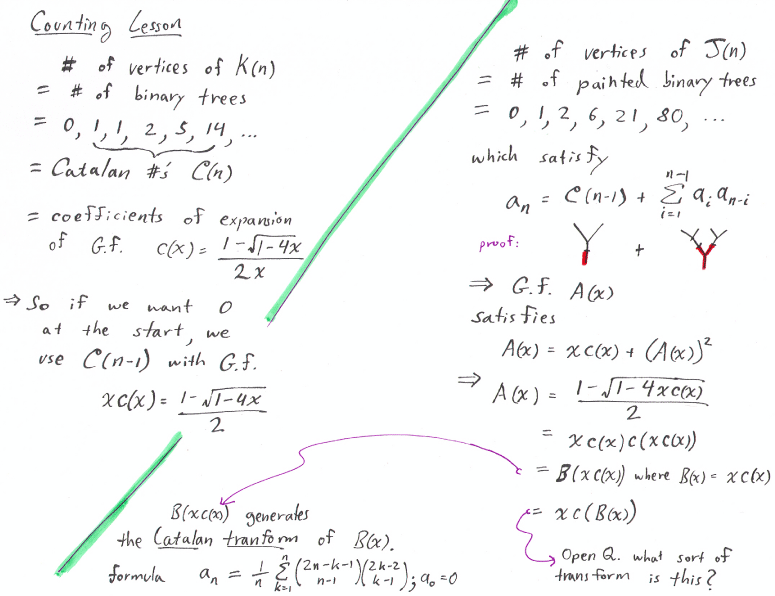 Counting Lesson
# of vertices of K(n)
= # of binary trees
= 0, 1, 1, 2, 5, 14, ...
= Catalan #'s C(n)
= coefficients of expansion
of G.f. c(x) = (1-√(1-4x))/(2x)
⇒ So if we want 0
at the start, we
use C(n-1) with G.f.
xc(x) = (1-√(1-4x))/2
# of vertices of J(n)
= # of painted binary trees
= 0, 1, 2, 6, 21, 80, ...
which satisfy
a_n = C(n-1) + Σ_{i=1}^{n-1} a_i a_{n-i}
proof: +
⇒ G.f. A(x)
satisfies
A(x) = xc(x) + (A(x))²
⇒ A(x) = (1-√(1-4xc(x)))/2
= xc(x)c(xc(x))
= B(xc(x)) where B(x) = xc(x)
= xc(B(x))
Open Q. what sort of
transform is this?
B(xc(x)) generates
the Catalan tranform of B(x).
formula a_n = 1/n Σ_{k=1}^{n} (2n-k-1 choose n-1)(2k-2 choose k-1); a_0 = 0